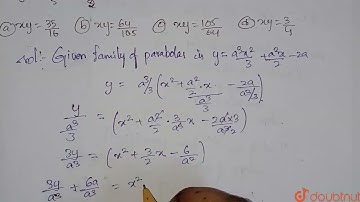 (a) xy = 35/16 (b) xy = 64/105 (c) xy = 105/64 (d) xy = 3/4
Sol: Given family of parabolas is y = a³x²/3 + a²x/2 - 2a
y = a³/3 (x² + a²/2 · x/(a³/3) - 2a/(a³/3))
y/(a³/3) = (x² + a²/2 · 3/a³ x - 2a×3/a³)
3y/a³ = (x² + 3/2 x - 6/a²)
3y/a³ + 6a/a³ = x²
doubtnut